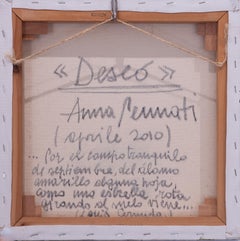 « Deseo »
Anna Pennati
(aprile 2010)
... Por el campo tranquilo
de septiembre, del álamo
amarillo alguna hoja,
como una estrella rota
girando al suelo viene...
(Luis Cernuda)